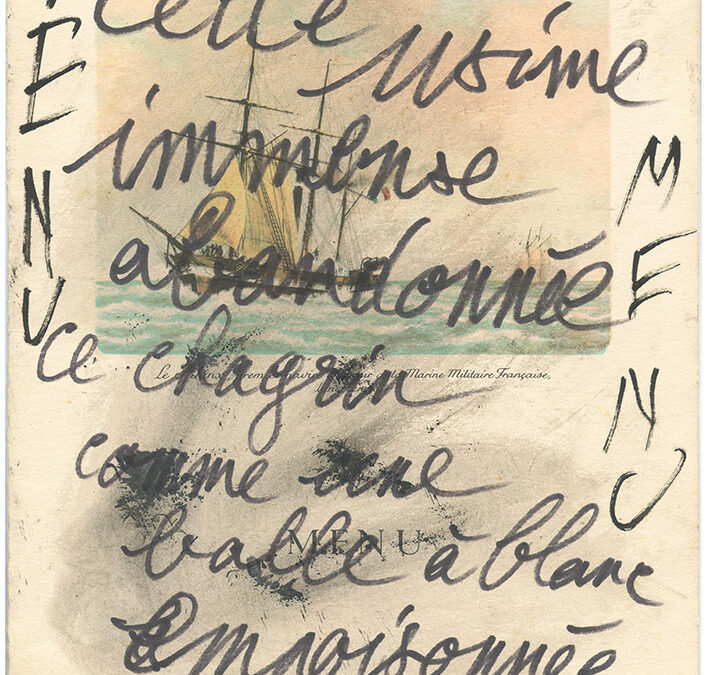 cette usine
immense
abandonnée
ce chagrin
Marine Militaire Française,
comme une
MENU
balle à blanc
Empoisonnée
MENU
MENU